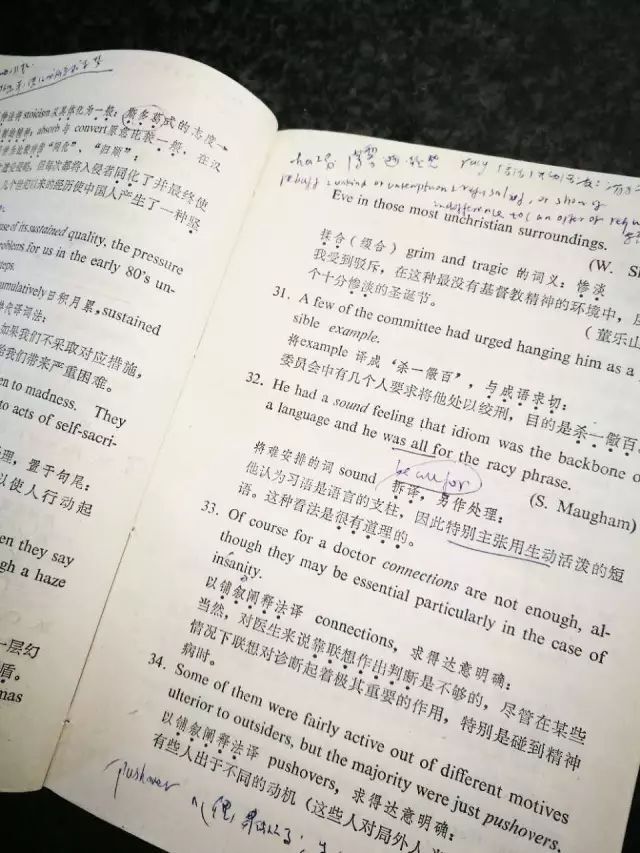 译法将stoicism及其体化为一般：斯多葛武的态度→
absorb与convert原意花较一般，在汉
"同化"，"归顺"：
但每次都将入侵者同化了并最终使
几个世纪以来的经历使中国人产生了一种坚
use of its sustained quality, the pressure
problems for us in the early 80's un-
steps.
cumulatively日积月累, sustained
如果我们不采取对应措施，
给我们带来严重困难。
en to madness. They
to acts of self-sacri-
理，置于句尾：
以使人行动起
en they say
gh a haze
一层幻
盾。
mas
haze
racy
rebuff
indifference to (an offer or requ
Eve in those most unchristian surroundings.
(W. Sh
揉合（缀合）grim and tragic 的词义：惨淡
我受到驳斥，在这种最没有基督教精神的环境中，度
个十分惨淡的圣诞节。
(董乐山
31. A few of the committee had urged hanging him as a
sible example.
将example 译成"杀一儆百"，与成语求切：
委员会中有几个人要求将他处以绞刑，目的是杀一儆百。
32. He had a sound feeling that idiom was the backbone o
a language and he was all for the racy phrase.
be all for
(S. Maugham)
将难安排的词 sound 拆译，另作处理：
他认为习语是语言的支柱，因此特别主张用生动活泼的短
语。这种看法是很有道理的。
33. Of course for a doctor connections are not enough, al-
though they may be essential particularly in the case of
insanity.
以铺叙阐释法译 connections，求得达意明确：
当然，对医生来说靠联想作出判断是不够的，尽管在某些
情况下联想对诊断起着极其重要的作用，特别是碰到精神
病时。
34. Some of them were fairly active out of different motives
ulterior to outsiders, but the majority were just pushovers,
以铺叙阐释法译 pushovers，求得达意明确：
有些人出于不同的动机（这些人对局外人
pushover